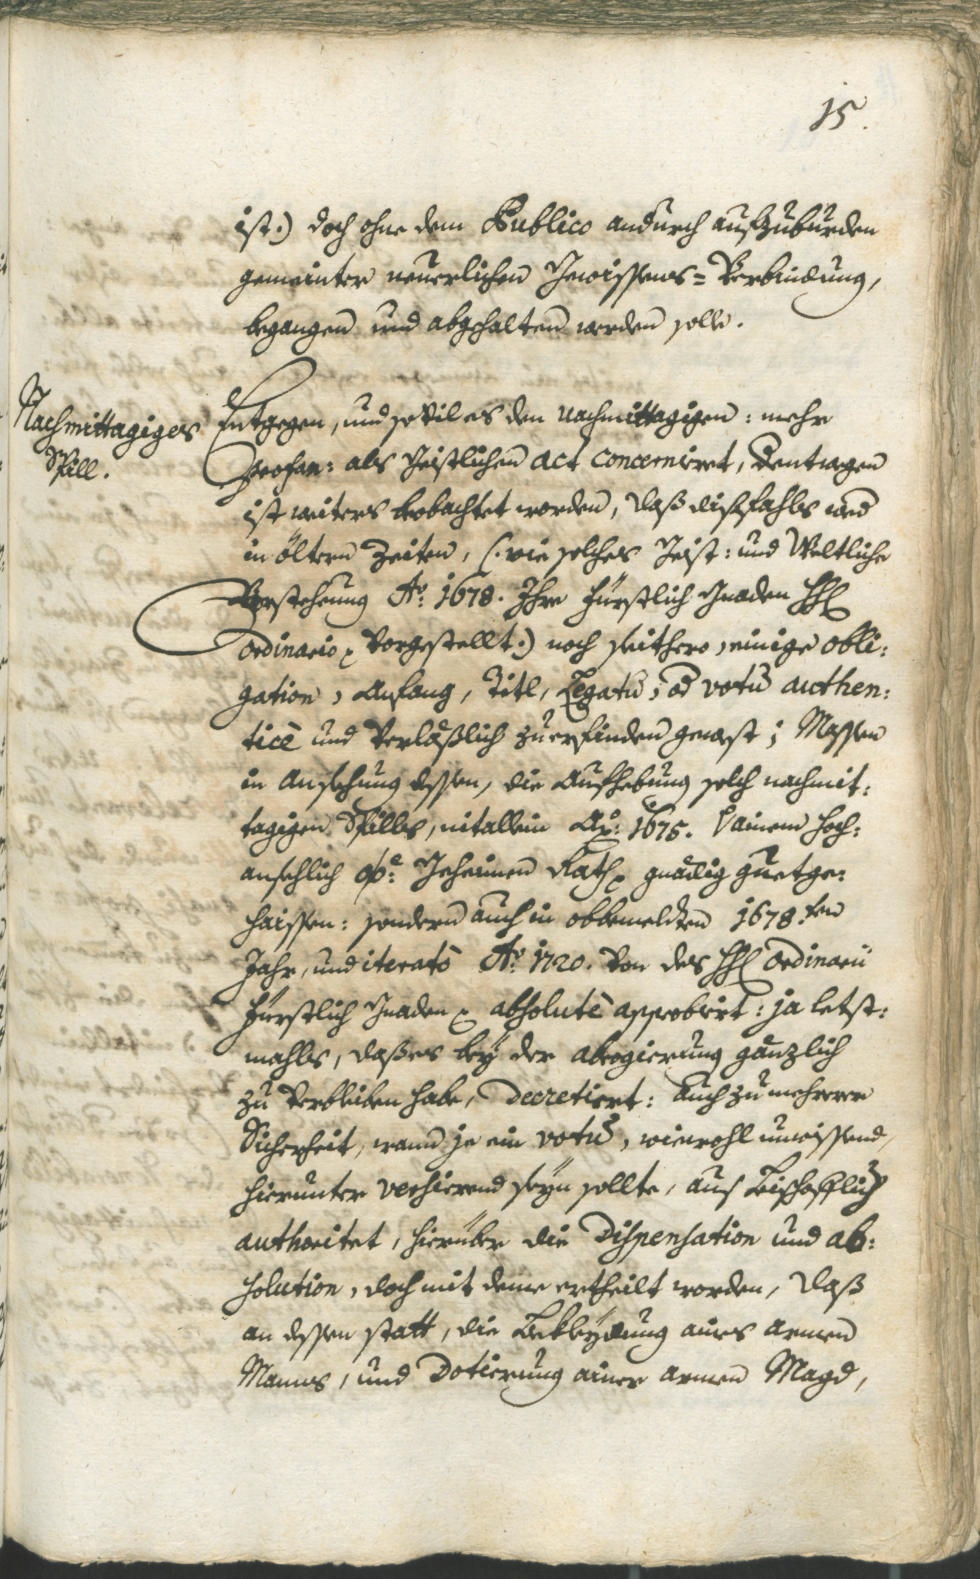 15.
ist.) doch ohne dem Publico andurch aufzubürden
gemeinter neuerlichen Gewissens=Verbindung,
begangen und abgehalten werden solle.
Nachmittagiges
Spill.
Entgegen, und sovil es den nachmittagigen: mehr
profan: als Geistlichen act concerniret, dentwegen
ist weiters beobachtet worden, daß disfahls wed
in öltern Zeiten, (: wie solches Geist: und Weltliche
Vorstehung Aō: 1678. Ihro Fürstlich Gnaden HH
Ordinario vorgestellt:) noch seithero, einige obli:
gation, Anfang, Titl, Legatū, od votū authen:
ticè und verläßlich zuerfinden gewest; Massen
in Ansehung dessen, die Aufhebung solch nachmit:
tagigen Spills, nit allein Aō: 1675. einem hoch:
ansehlich Geheimen Rath gnädig guetge:
haissen: sondern auch in obbemeldten 1678.ten
Jahr, und iteratò Aō: 1720. von des HH Ordinarii
Fürstlich Gnaden absolutè approbirt: ja letst:
mahls, daß es bey der abrogierung gänzlich
zu verbleiben habe, decretiert: auch zu mehrerer
Sicherheit, wann je ein votū, wiewohl unwissend,
hierunter versierend seyn sollte, aus Bischofflich
authoritet, hierüber die Dispensation und ab:
solution, doch mit deme ertheilt worden, daß
an dessen statt, die Bekleydung aines armen
Manns, und Dotierung ainer armen Magd,